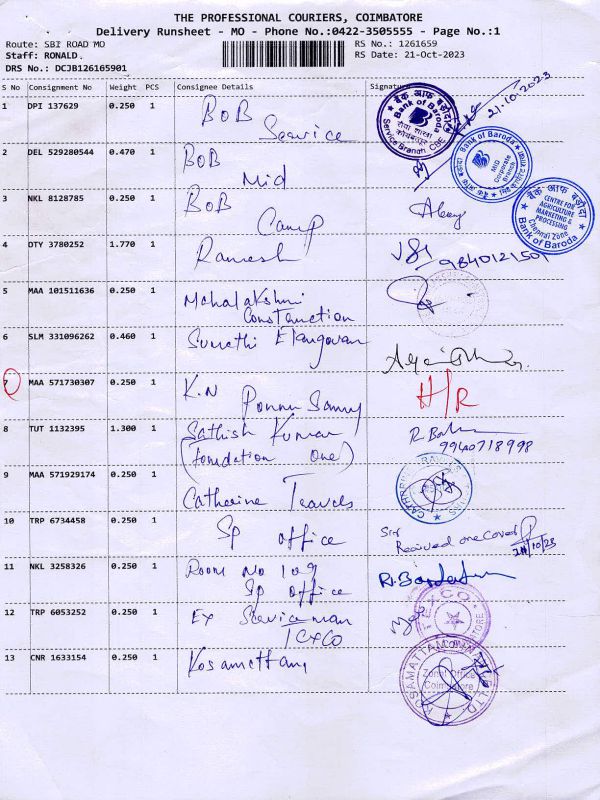 THE PROFESSIONAL COURIERS, COIMBATORE
Delivery Runsheet - MO - Phone No.:0422-3505555 - Page No.:1
Route: SBI ROAD MO
RS No.: 1261659
Staff: RONALD.
RS Date: 21-Oct-2023
DRS No.: DCJB126165901
S No Consignment No Weight PCS Consignee Details Signature
1 DPI 137629 0.250 1 BOB
Service
21.10.2023
बैंक ऑफ़ बड़ौदा
Bank of Baroda
सेवा शाखा
कोयंबतूर
Service Branch CBE
2 DEL 529280544 0.470 1 BOB
Mid
Bank of Baroda
MID
Corporate
Branch
3 NKL 8128785 0.250 1 BOB
Camp
बैंक ऑफ़ बड़ौदा
CENTRE FOR
AGRICULTURE
MARKETING &
PROCESSING
Chennai Zone
Bank of Baroda
4 OTY 3780252 1.770 1 Ramesh
9840121501
5 MAA 101511636 0.250 1 Mahalakshmi
Construction
6 SLM 331096262 0.460 1 Sumathi Elangovan
7 MAA 571730307 0.250 1 K.N
Ponnu Samy
H/R
8 TUT 1132395 1.300 1 Sathish Kumar
(foundation one)
9940718998
9 MAA 571929174 0.250 1
Catherine Travels
10 TRP 6734458 0.250 1 SP office
Received one cover
21/10/23
11 NKL 3258326 0.250 1 Room No 109
SP office
12 TRP 6053252 0.250 1 Ex Service man
13 CNR 1633154 0.250 1
Zonal Office
Coimbatore